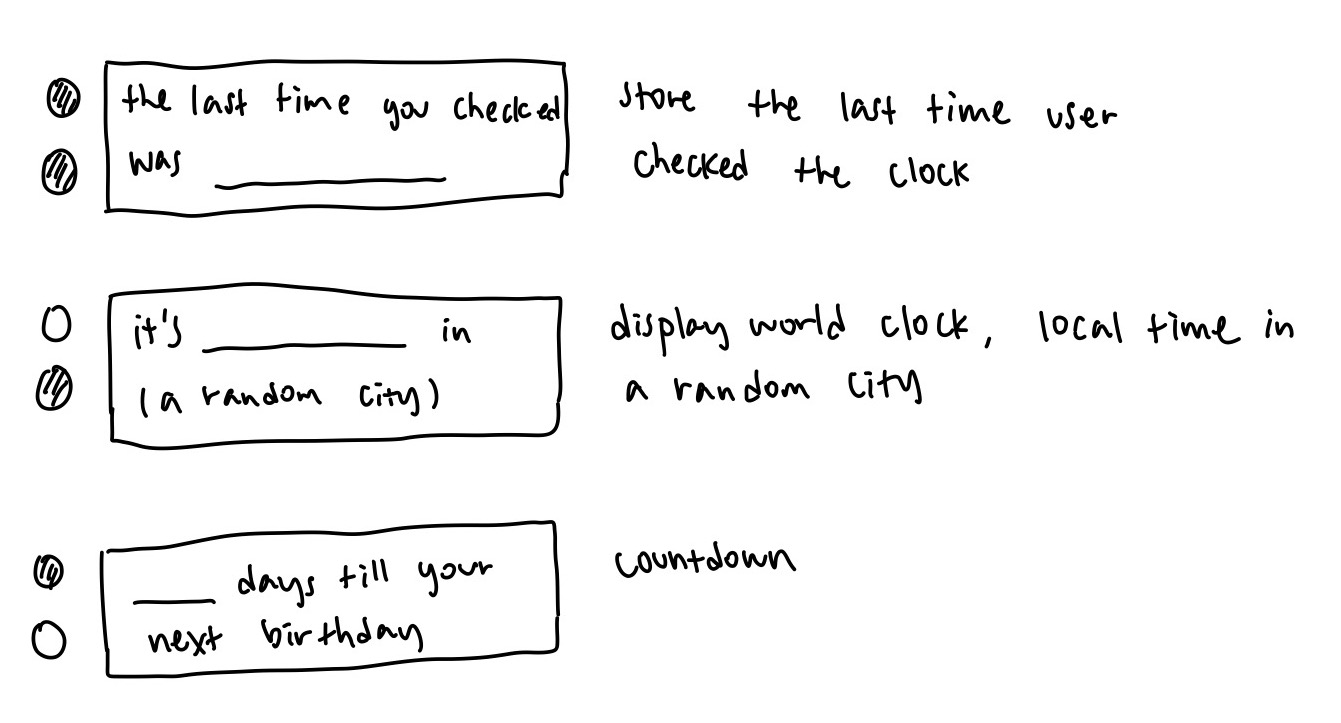 the last time you checked
was
store the last time user
checked the clock
it's in
(a random city)
display world clock, local time in
a random city
days till your
next birthday
countdown